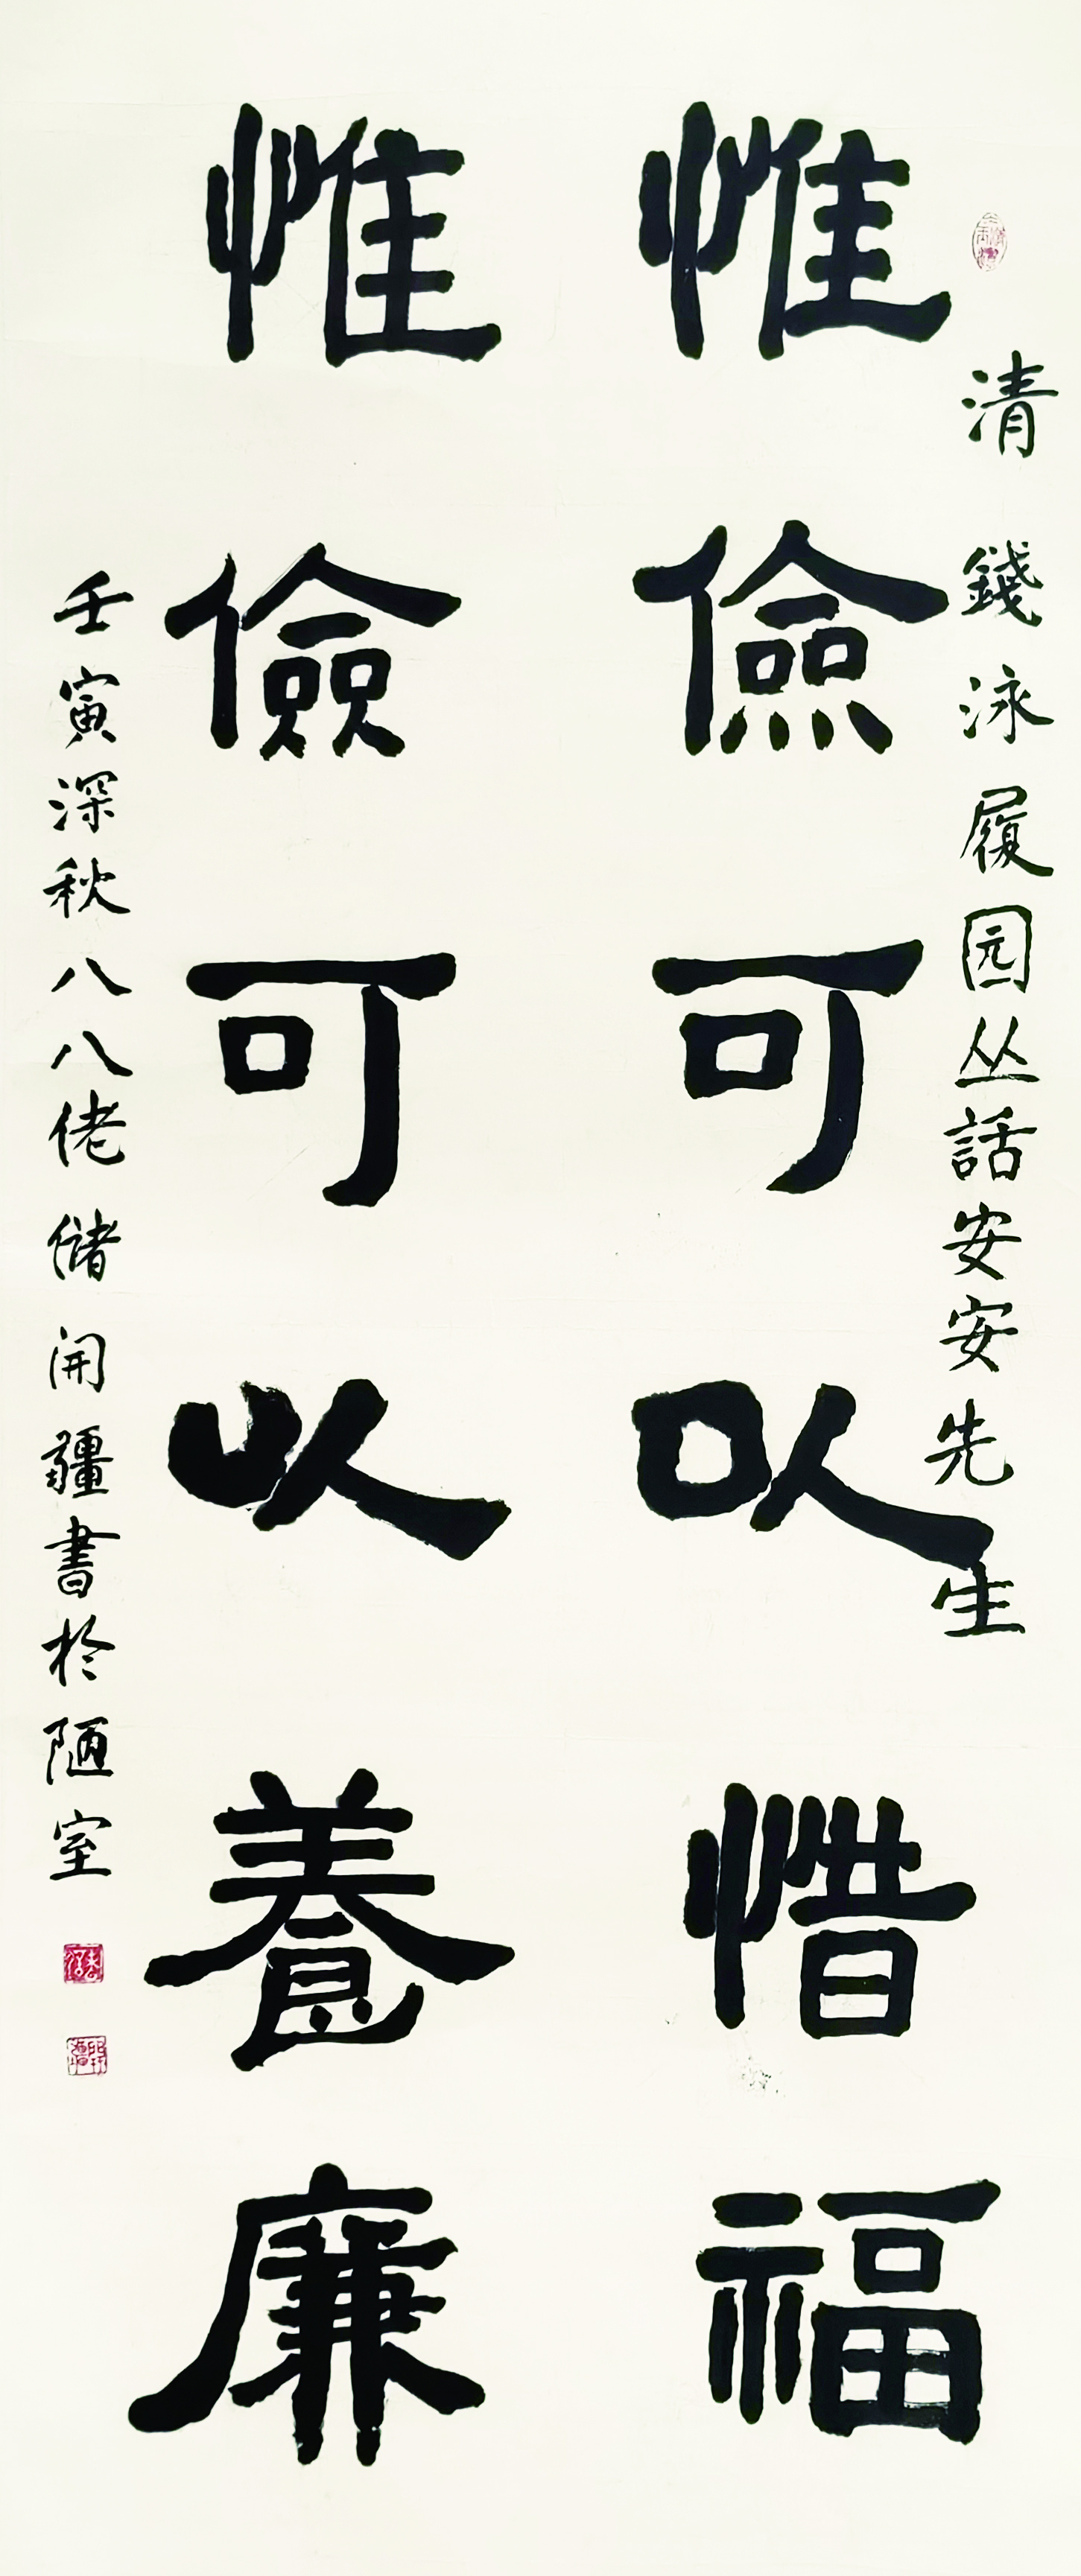 清 錢泳履园丛話安安先生
惟儉可以惜福
惟儉可以養廉
壬寅深秋八八佬 儲開疆書於陋室